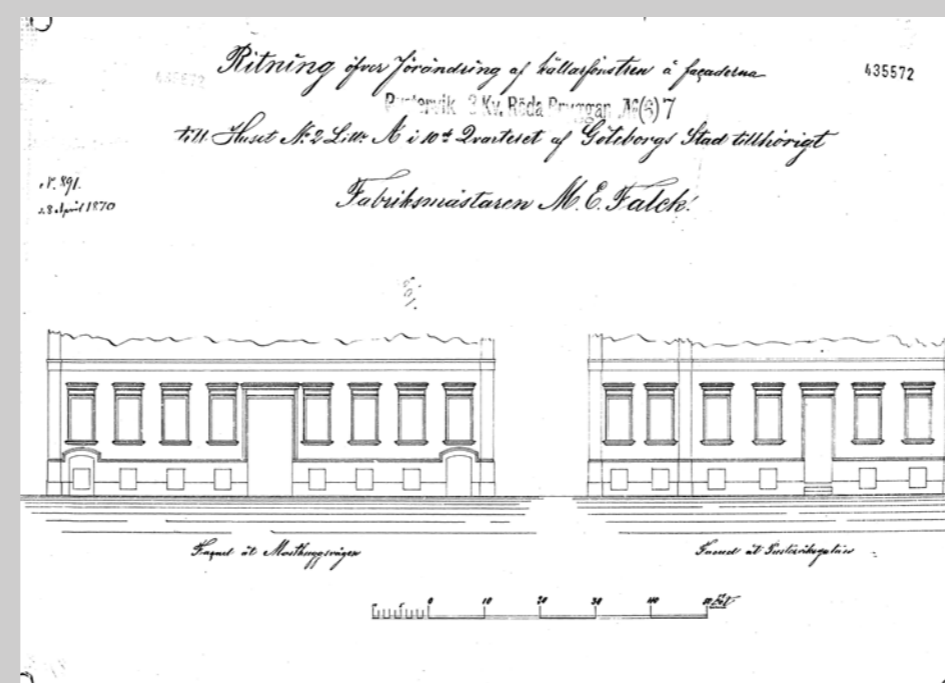 Ritning öfver förändring af källarfönstren å façaderna
435572
435572
Pustervik 3 Kv. Röda Bryggan № (6) 7
till Huset Nº 2 Litt: A i 10de Qvarteret af Göteborgs Stad tillhörigt
Nº 891.
28 April 1870
Fabriksmästaren M. E. Falck.
Façad åt Masthuggsvägen
Facad åt Pusterviksgatan
0 10 20 30 40 50 Fot